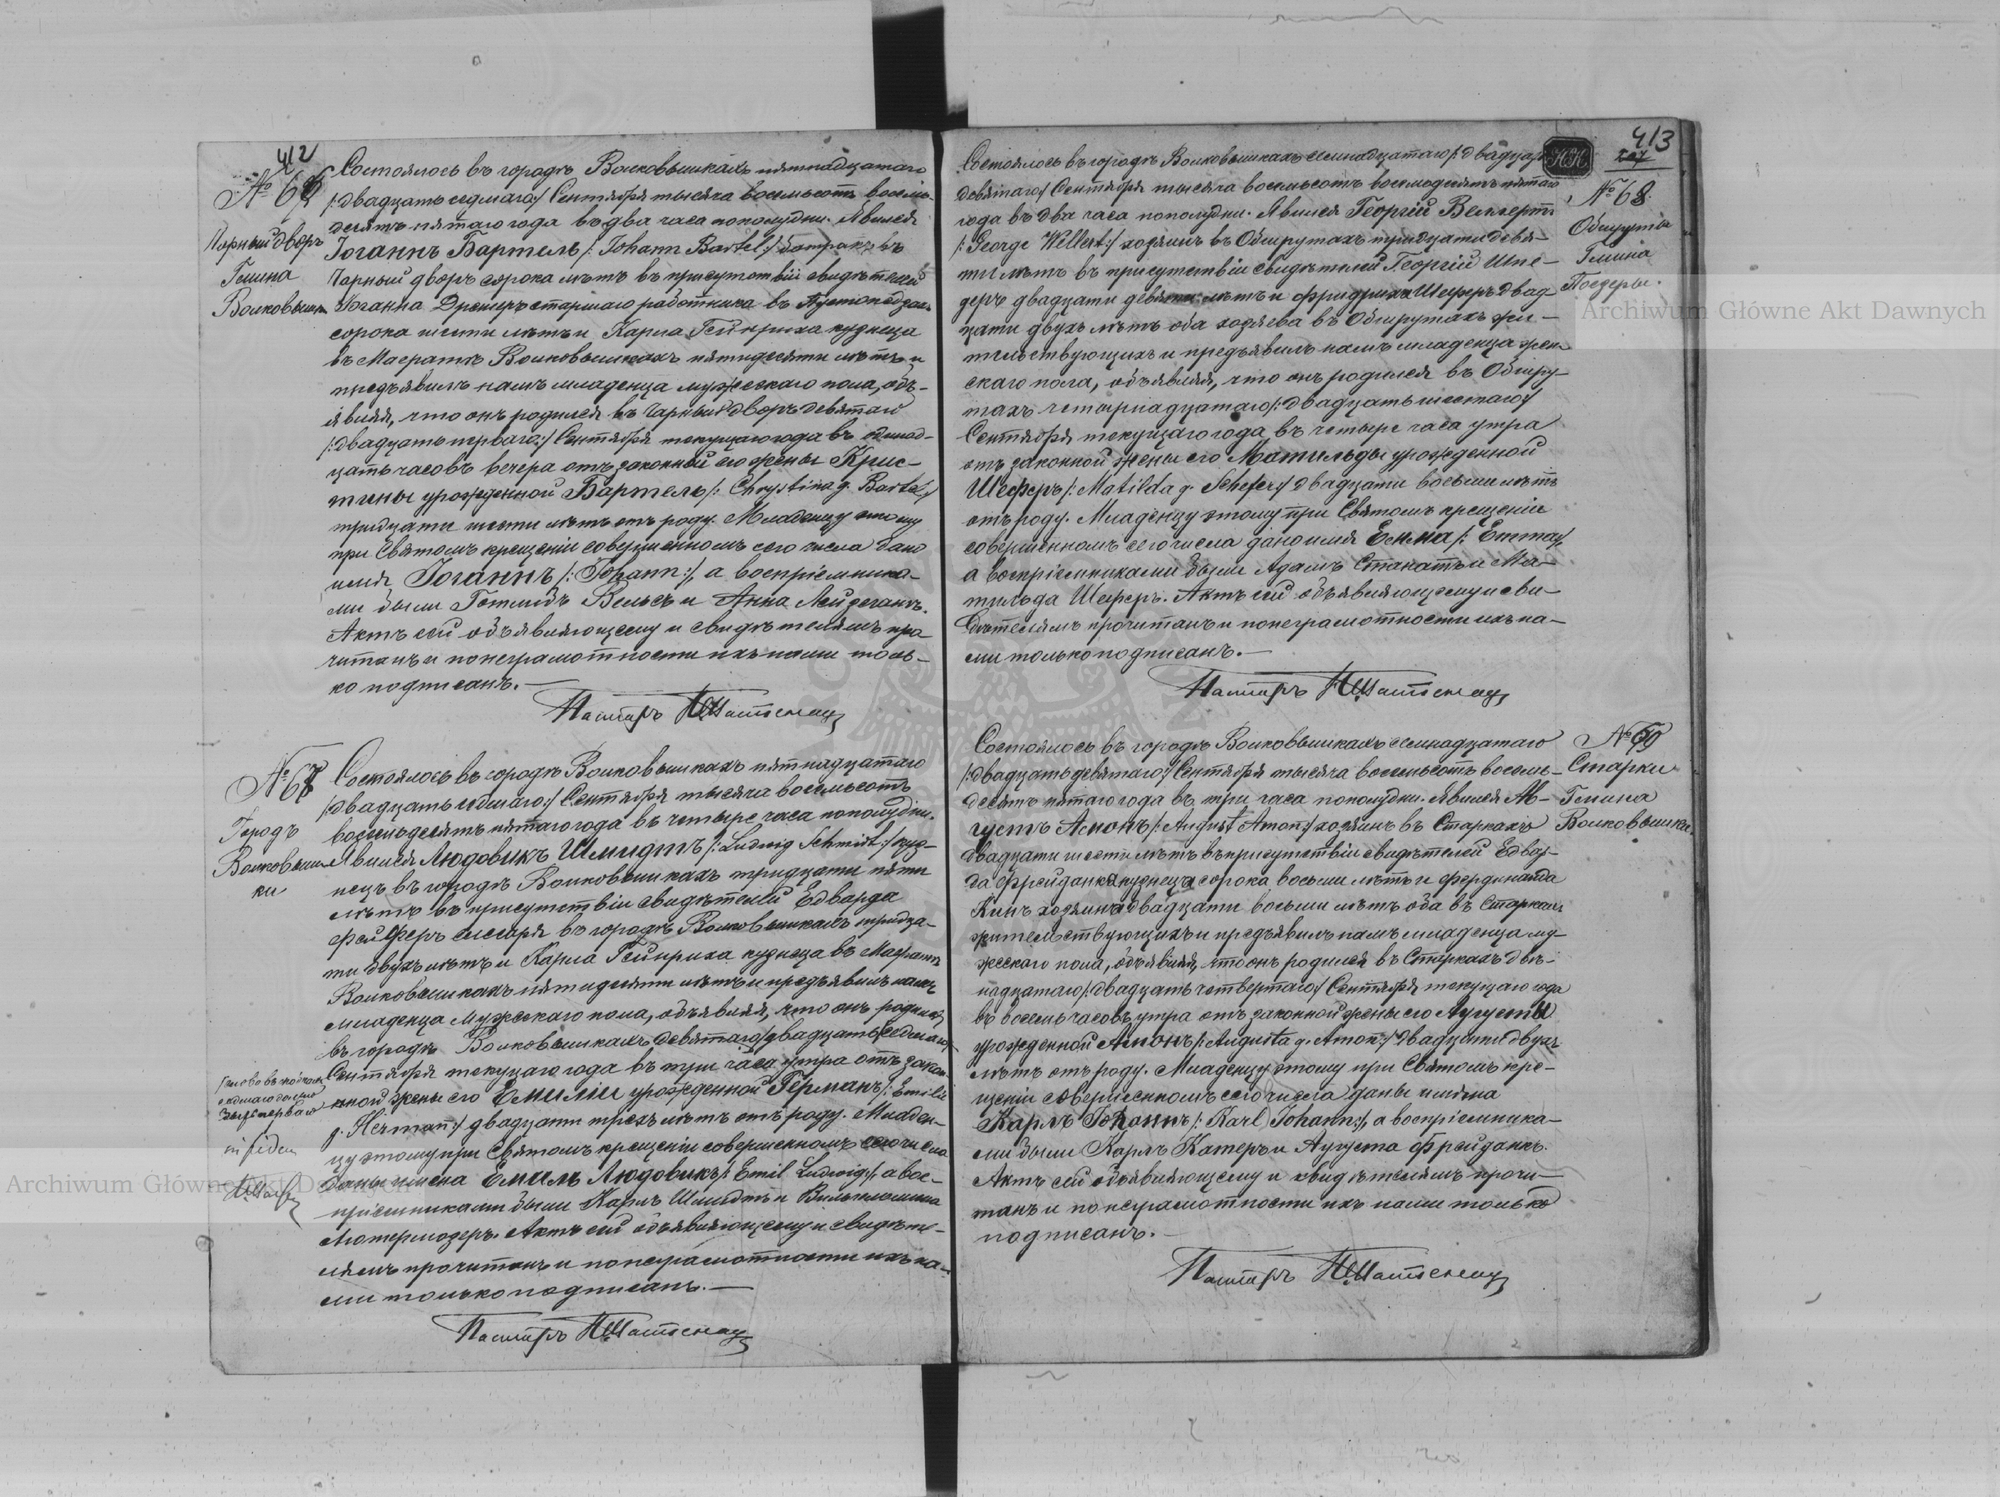 412
№ 66
Чарный дворъ
Гмина
Волковышки
Состоялось въ городѣ Волковышкахъ пятнадцатаго
/:двадцать седьмаго:/ Сентября тысяча восемьсотъ восемь-
десятъ пятаго года въ два часа пополудни. Явился
Іоганнъ Бартель /: Johann Bartel :/ батракъ въ
Чарный дворъ сорока лѣтъ въ присутствіи свидѣтелей
Іоганна Дреперъ старшаго работника въ
сорока шести лѣтъ и Карла Гейнриха кузнеца
въ Маератѣ Волковышкахъ пятидесяти лѣтъ и
предъявилъ намъ младенца мужескаго пола, объ-
являя, что онъ родился въ Чарный дворъ девятаго
/:двадцать перваго:/ Сентября текущаго года въ одинад-
цать часовъ вечера отъ законной его жены Крис-
тины урожденной Бартель /: Chrystina g. Bartel :/
тридцати шести лѣтъ отъ роду. Младенцу этому
при Святомъ крещеніи совершенномъ сего числа дано
имя Іоганнъ /: Johann :/, а воспріемника-
ми были Готлибъ Вельсъ и Анна Лейдеганъ.
Актъ сей объявляющему и свидѣтелямъ про-
читанъ и по неграмотности ихъ нами толь-
ко подписанъ. —
Пасторъ
№ 67
Городъ
Волковыш-
ки
Состоялось въ городѣ Волковышкахъ пятнадцатаго
/:двадцать седьмаго:/ Сентября тысяча восемьсотъ
восемьдесятъ пятаго года въ четыре часа пополудни.
Явился Людовикъ Шмидтъ /: Ludwig Schmidt :/ куз-
нецъ въ городѣ Волковышкахъ тридцати пяти
лѣтъ въ присутствіи свидѣтелей Едварда
Фейферъ слесаря въ городѣ Волковышкахъ тридца-
ти двухъ лѣтъ и Карла Гейнриха кузнеца въ Маератѣ
Волковышкахъ пятидесяти лѣтъ и предъявилъ намъ
младенца мужескаго пола, объявляя, что онъ родился
въ городѣ Волковышкахъ девятаго /двадцать седьмаго/
Сентября текущаго года въ три часа утра отъ закон-
ной жены его Емиліи урожденной Германъ /: Emilie
g. Herman :/ двадцати трехъ лѣтъ отъ роду. Младен-
цу этому при Святомъ крещеніи совершенномъ сего числа
даны имена Емиль Людовикъ /: Emil Ludwig :/, а вос-
пріемниками были Карлъ Шмидтъ и Вильгельмина
Лютермозеръ. Актъ сей объявляющему и свидѣте-
лямъ прочитанъ и по неграмотности ихъ на-
ми только подписанъ. —
in fidem
Пасторъ
413
207
№ 68
Обшруты
Гмина
Поедеры.
Состоялось въ городѣ Волковышкахъ семнадцатаго /:двадцать
девятаго:/ Сентября тысяча восемьсотъ восемьдесятъ пятаго
года въ два часа пополудни. Явился Георгій Веллертъ
/: George Wellert :/ хозяинъ въ Обшрутахъ тридцати девя-
ти лѣтъ въ присутствіи свидѣтелей Георгій Шне-
деръ двадцати девяти лѣтъ и Фридриха Шеферъ двад-
цати двухъ лѣтъ оба хозяева въ Обшрутахъ жи-
тельствующихъ и предъявилъ намъ младенца жен-
скаго пола, объявляя, что онъ родился въ Обшру-
тахъ четырнадцатаго /:двадцать шестаго:/
Сентября текущаго года въ четыре часа утра
отъ законной жены его Матильды урожденной
Шеферъ /: Matilda g. Schefer :/ двадцати восьми лѣтъ
отъ роду. Младенцу этому при Святомъ крещеніи
совершенномъ сего числа дано имя Емма /: Emma :/
а воспріемниками были Адамъ Стакатъ и Ма-
тильда Шеферъ. Актъ сей объявляющему и сви-
дѣтелямъ прочитанъ и по неграмотности ихъ на-
ми только подписанъ. —
Пасторъ
№ 69
Старки
Гмина
Волковышки.
Состоялось въ городѣ Волковышкахъ семнадцатаго
/:двадцать девятаго:/ Сентября тысяча восемьсотъ восемь-
десятъ пятаго года въ три часа пополудни. Явился Ав-
густъ Амонъ /: August Amon :/ хозяинъ въ Старкахъ
двадцати шести лѣтъ въ присутствіи свидѣтелей Едвар-
да Фрейданка кузнеца сорока восьми лѣтъ и Фердинанда
Кинъ хозяина двадцати восьми лѣтъ оба въ Старкахъ
жительствующихъ и предъявилъ намъ младенца му-
жескаго пола, объявляя, что онъ родился въ Старкахъ двѣ-
надцатаго /:двадцать четвертаго:/ Сентября текущаго года
въ восемь часовъ утра отъ законной жены его Августы
урожденной Амонъ /: Augusta g. Amon :/ двадцати двухъ
лѣтъ отъ роду. Младенцу этому при Святомъ кре-
щеніи совершенномъ сего числа даны имена
Карлъ Іоганнъ /: Karl Johann :/, а воспріемника-
ми были Карлъ Катеръ и Августа Фрейданкъ.
Актъ сей объявляющему и свидѣтелямъ прочи-
танъ и по неграмотности ихъ нами только
подписанъ. —
Пасторъ
Archiwum Główne Akt Dawnych
Archiwum Główne Akt Dawnych